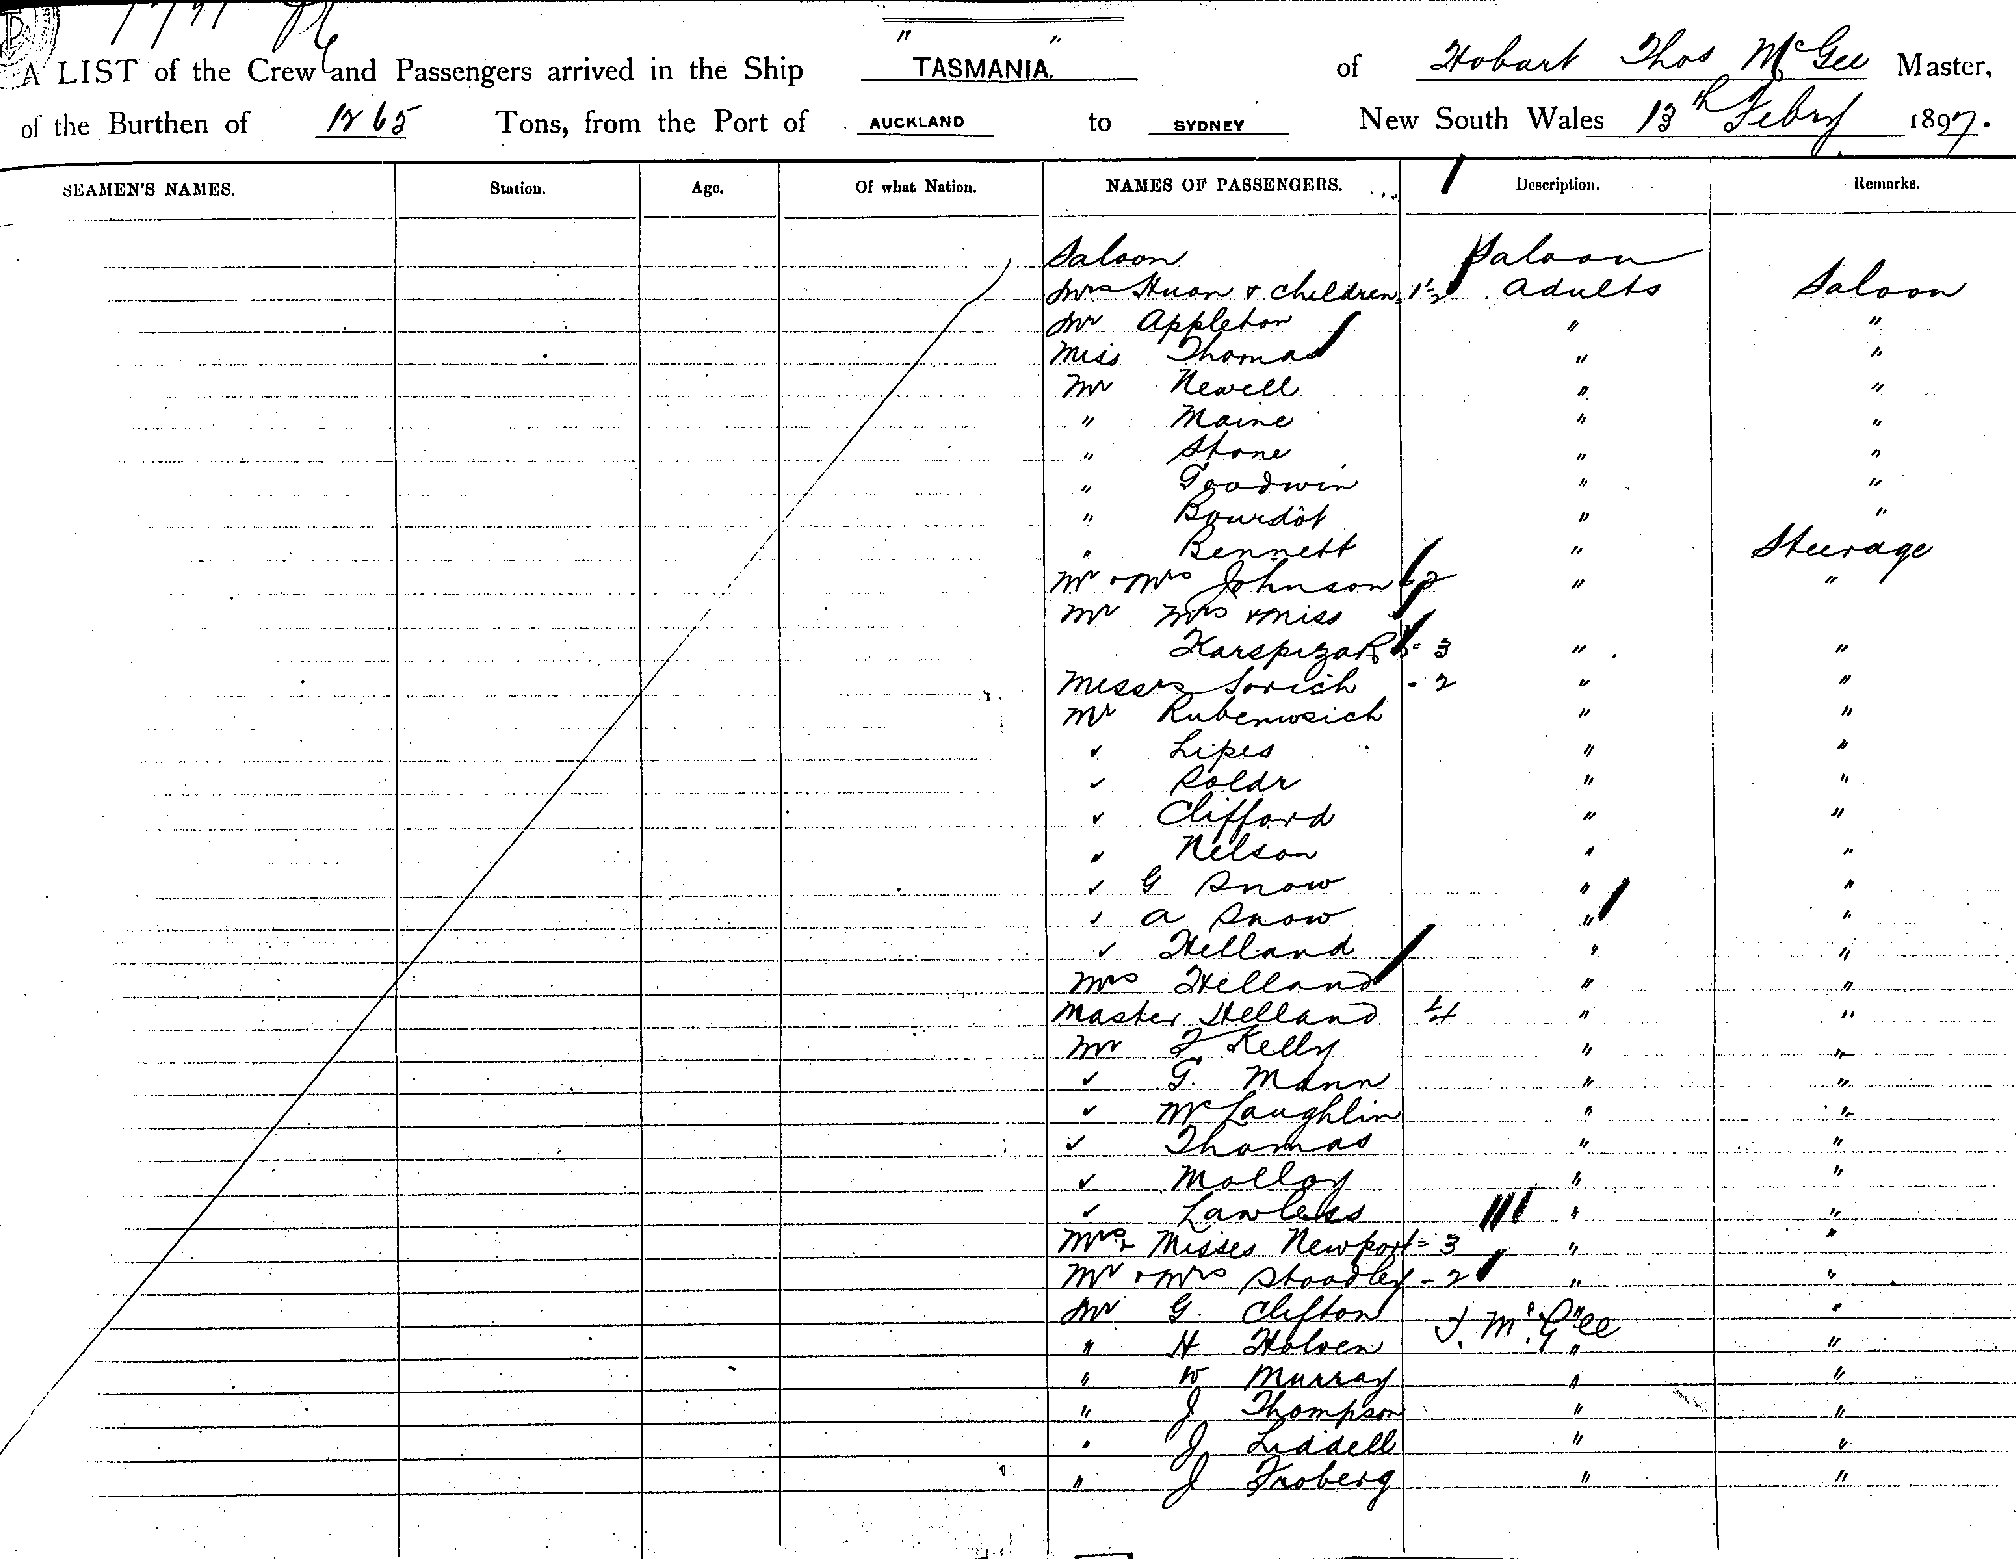 " "
A LIST of the Crew and Passengers arrived in the Ship TASMANIA. of Hobart Thos McGee Master,
of the Burthen of 1265 Tons, from the Port of AUCKLAND to SYDNEY New South Wales 13th Febry 1897.
SEAMEN'S NAMES. Station. Age. Of what Nation. NAMES OF PASSENGERS. Description. Remarks.
Saloon Saloon
Mrs Huon & children 1½ Adults Saloon
Mr Appleton " "
Miss Thomas " "
Mr Newell " "
" Maine " "
" Stone " "
" Goodwin " "
" Bourdot " "
" Bennett " Steerage
Mr & Mrs Johnson 2 " "
Mr Mrs & Miss
= 3 " "
Messrs - 2 " "
Mr " "
✓ Lipes " "
✓ " "
✓ Clifford " "
✓ Nelson " "
✓ G Snow " "
✓ A Snow " "
✓ Helland " "
Mrs Helland " "
Master Helland " "
Mr F Kelly " "
✓ G. Mann " "
✓ McLaughlin " "
✓ Thomas " "
✓ Molloy " "
✓ Lawless " "
Mrs & Misses Newport = 3 " "
Mr & Mrs Stoodley - 2 " "
Mr G. Clifton " "
T. McGee
" H Holven " "
" W Murray " "
" J Thompson " "
" J Liddell " "
" J Froberg " "